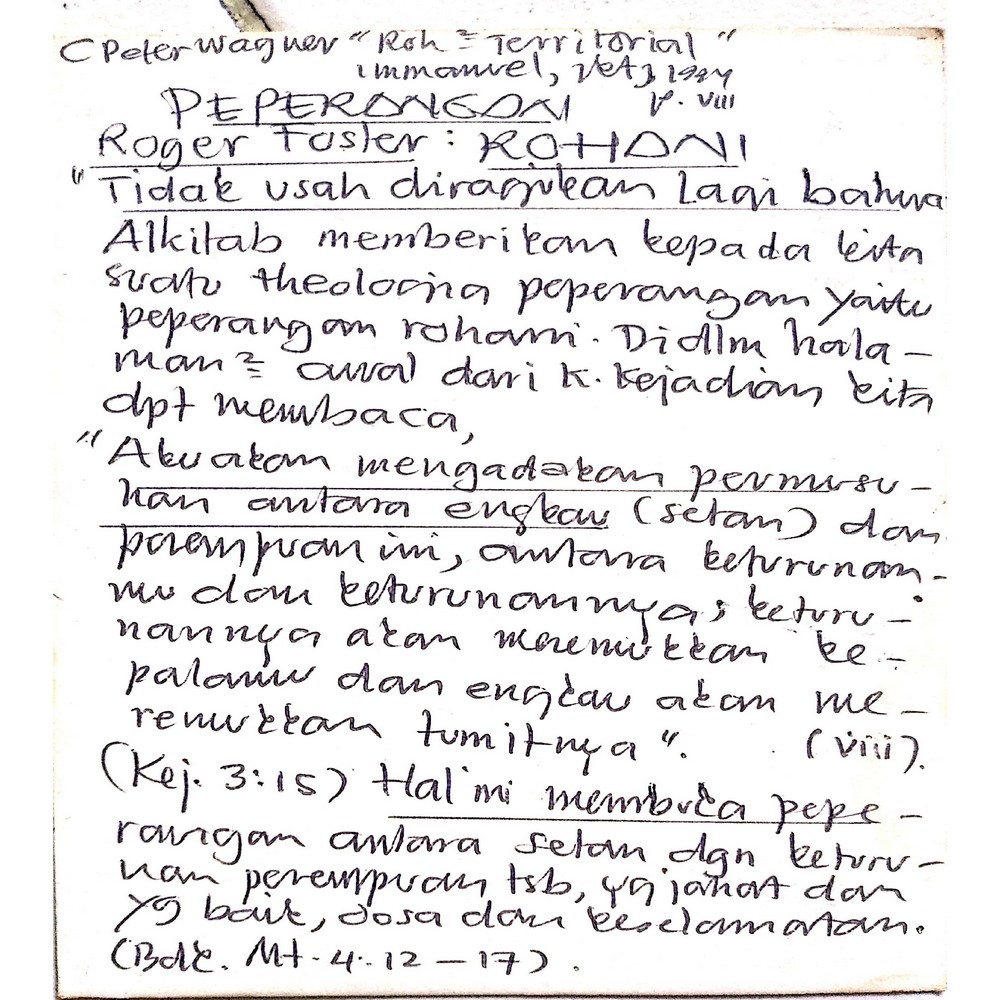 C Peter Wagner "Roh² Territorial"
Immanuel, Cet 3, 1994
PEPERANGAN p. viii
Roger Foster: ROHANI
"Tidak usah diragukan lagi bahwa
Alkitab memberikan kepada kita
suatu theologia peperangan yaitu
peperangan rohani. Didlm hala-
man² awal dari K. Kejadian kita
dpt membaca,
"Aku akan mengadakan permusu-
han antara engkau (setan) dan
perempuan ini, antara keturunan-
mu dan keturunannya; keturu-
nannya akan meremukkan ke-
palamu dan engkau akan me-
remukkan tumitnya". (viii).
(Kej. 3:15) Hal ini membuka pepe-
rangan antara setan dgn keturu-
nan perempuan tsb, yg jahat dan
yg baik, dosa dan keselamatan.
(Bdk. Mt. 4. 12 – 17).